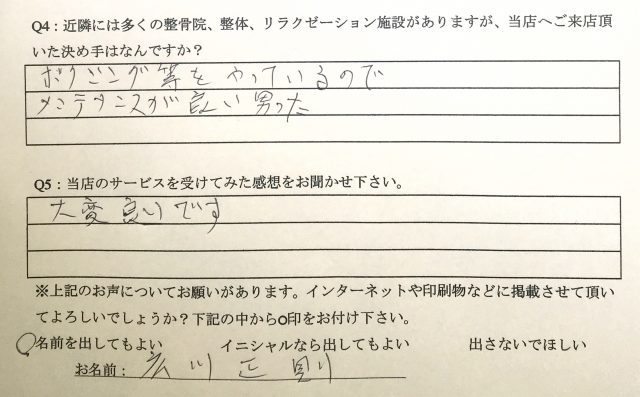 Q4：近隣には多くの整骨院、整体、リラクゼーション施設がありますが、当店へご来店頂
いた決め手はなんですか？
ボクシング等をやっているので
メンテナンスが良い
Q5：当店のサービスを受けてみた感想をお聞かせ下さい。
大変良いです
※上記のお声についてお願いがあります。インターネットや印刷物などに掲載させて頂い
てよろしいでしょうか？下記の中から○印をお付け下さい。
名前を出してもよい イニシャルなら出してもよい 出さないでほしい
お名前： 広川 正則